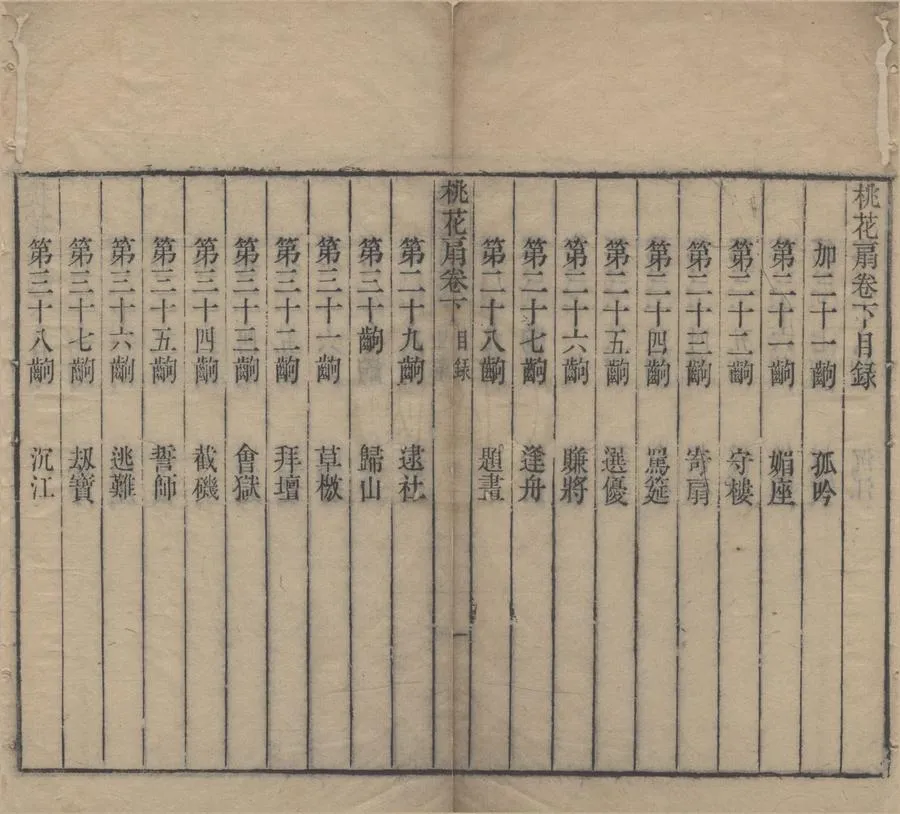 桃花扇卷下目錄
加二十一齣 孤吟
第二十一齣 媚座
第二十二齣 守樓
第二十三齣 寄扇
第二十四齣 罵筵
第二十五齣 選優
第二十六齣 賺將
第二十七齣 逢舟
第二十八齣 題畫
桃花扇卷下 目錄 一
第二十九齣 逮社
第三十齣 歸山
第三十一齣 草檄
第三十二齣 拜壇
第三十三齣 會獄
第三十四齣 截磯
第三十五齣 誓師
第三十六齣 逃難
第三十七齣 刼寶
第三十八齣 沉江